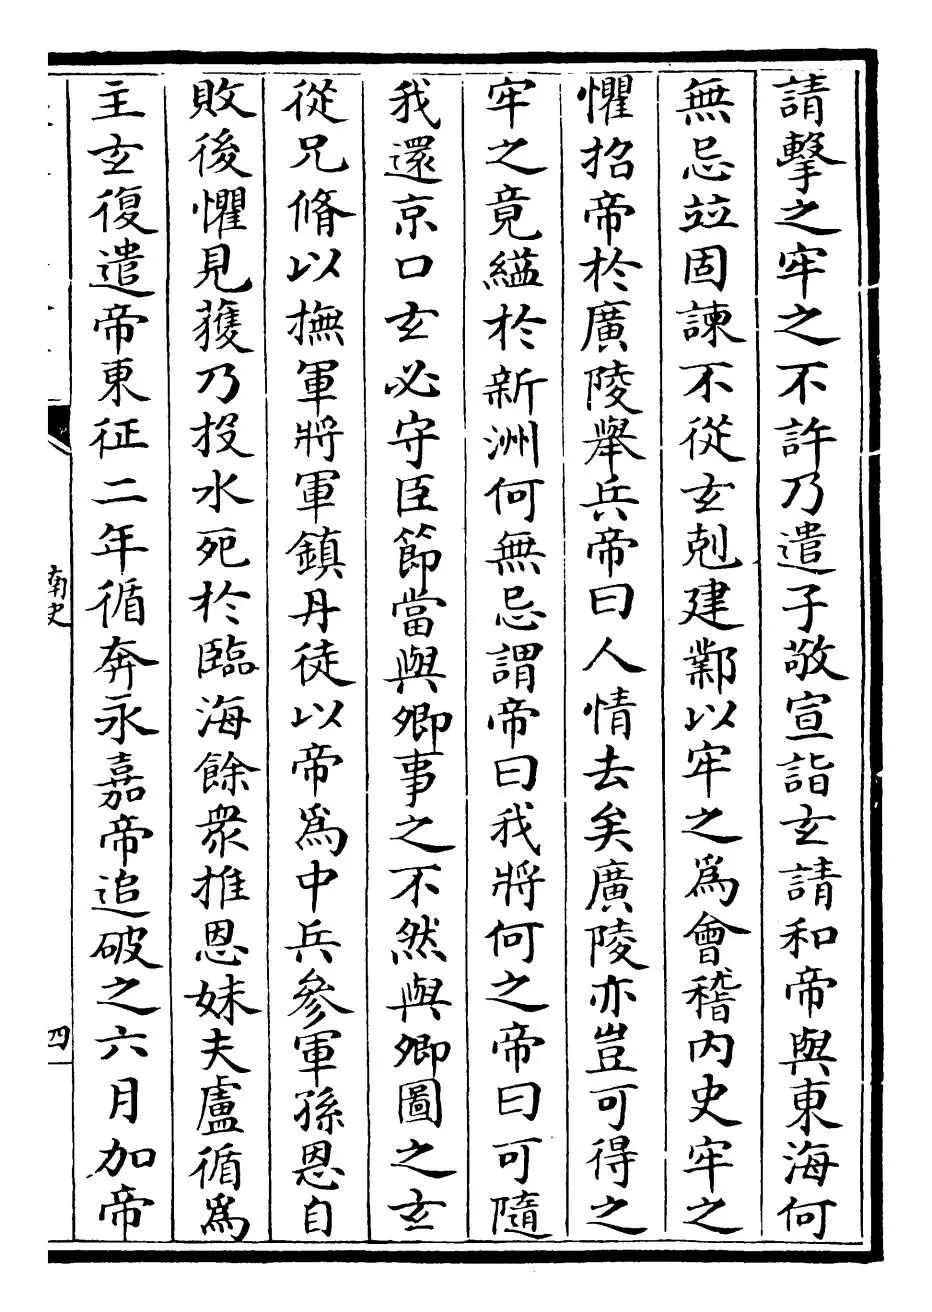 請擊之牢之不許乃遣子敬宣詣玄請和帝與東海何
無忌竝固諫不從玄剋建鄴以牢之爲會稽内史牢之
懼招帝於廣陵舉兵帝曰人情去矣廣陵亦豈可得之
牢之竟縊於新洲何無忌謂帝曰我將何之帝曰可隨
我還京口玄必守臣節當與卿事之不然與卿圖之玄
從兄脩以撫軍將軍鎮丹徒以帝爲中兵參軍孫恩自
敗後懼見獲乃投水死於臨海餘衆推恩妹夫盧循爲
主玄復遣帝東征二年循奔永嘉帝追破之六月加帝
南史
四